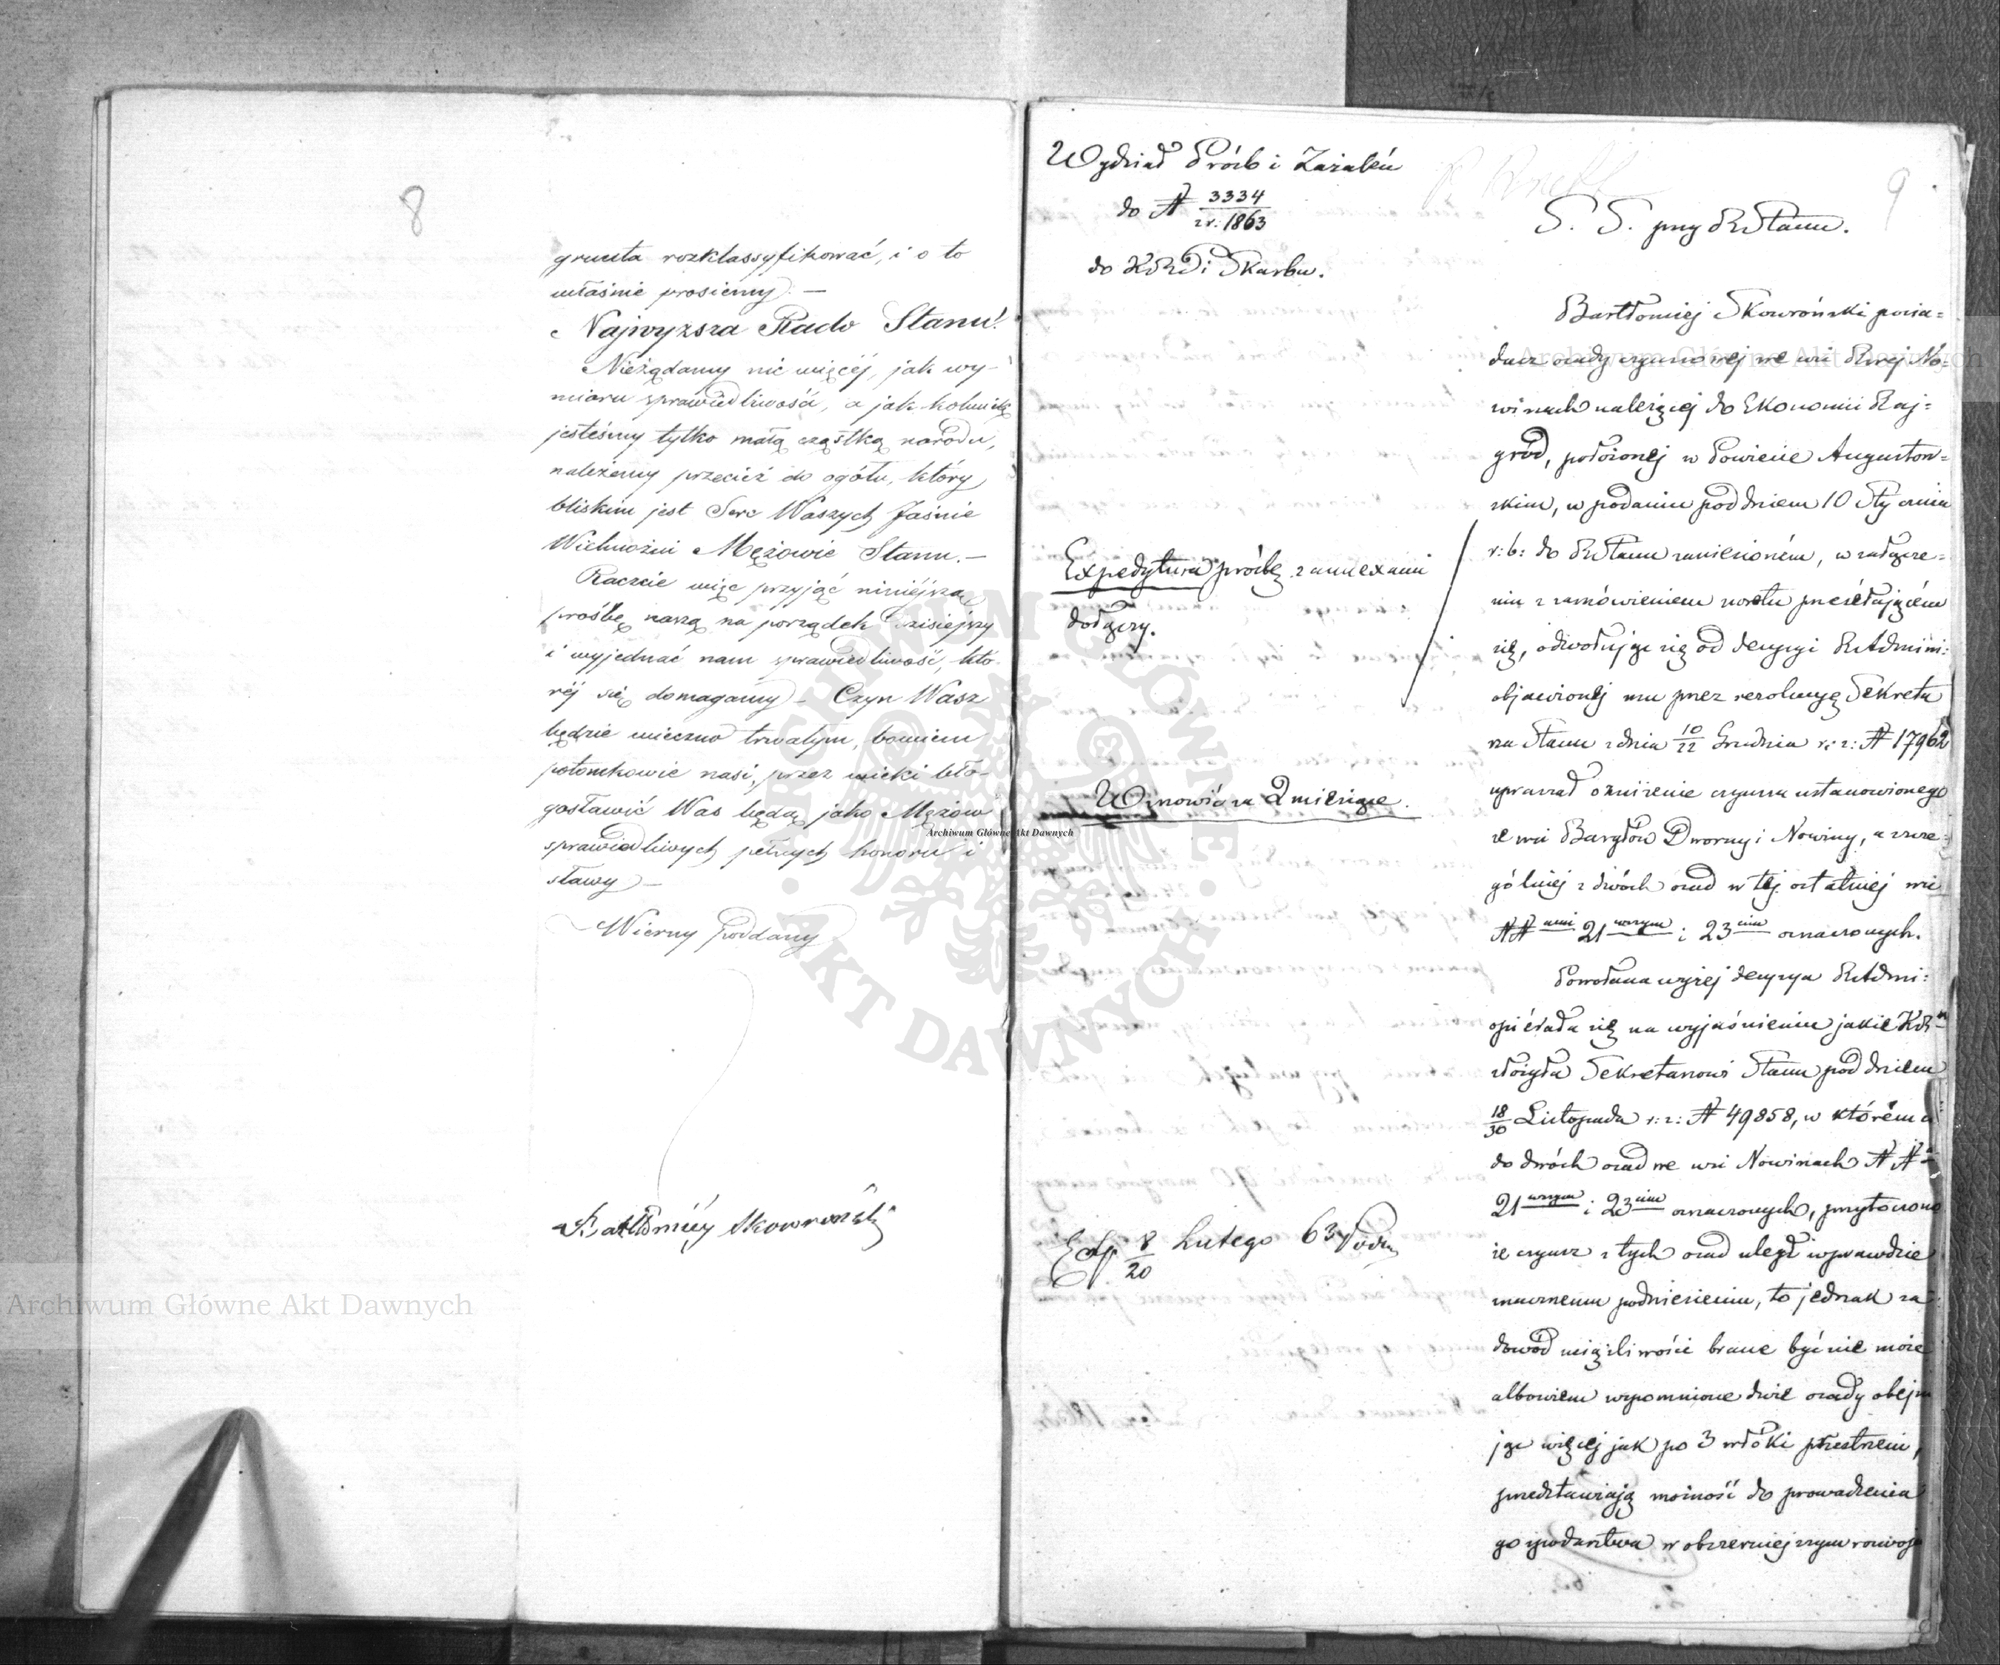 8
grunta rozklassyfikować, i o to
właśnie prosiemy. —
Najwyższa Rado Stanu!
Nieżądamy nic więcéj, jak wy-
miaru sprawiedliwości, a jak kolwiek
jesteśmy tylko małą cząstką narodu,
należemy przecież do ogółu, który
bliskim jest Serc Waszych Jaśnie
Wielmożni Mężowie Stanu. —
Raczcie więc przyjąć niniéjszą
prośbę naszą na porządek dzisiejszy
i wyjednać nam sprawiedliwość, któ-
réj się domagamy — Czyn Wasz
będzie wieczno trwałym, bowiem
potomkowie nasi, przez wieki bło-
gosławić Was będą jako Mężów
sprawiedliwych pełnych honoru i
sławy —
Wierny Poddany
Bartłomiéy Skowroński
Wydział Próśb i Zażaleń
do N 3334
z r: 1863
do KRP i Skarbu.
Expedytura prośbę z annexami
dołączy.
Wznowić za 2 miesiące.
Exp 8/20 Lutego 63
9
S. S. przy RStanu.
Bartłomiej Skowroński posia=
dacz osady czynszowej we wsi Rzej No=
winach należącej do Ekonomii Raj=
gród, położonej w Powiecie Augustow=
skim, w podaniu pod dniem 10 Stycznia
r: b: do RStanu zaniesioném, w załącze=
niu z zamówieniem zwrotu przesełającém
się, odwołuje się od decyzyi RAdmini:
objawionej mu przez rezolucyę Sekreta
rza Stanu z dnia 10/22 Grudnia r: z: N 17962
uprasza o zniżenie czynszu ustanowionego
ze wsi Baryłów Dworny i Nowiny, a szcze=
gólniej z dwóch osad w tej ostatniej wsi
NN ami 21 wszym i 23 cim oznaczonych.
Powołana wyżej decyzya RAdmi:
opiérała się na wyjaśnieniu jakie KR
złożyła Sekretarzowi Stanu pod dniem
18/30 Listopada r: z: N 49858, w którém co
do dwóch osad we wsi Nowinach NN
21 wszym i 23 cim oznaczonych, przytoczono
że czynsz z tych osad uległ wprawdzie
znacznemu podniesieniu, to jednak za
dowód uciążliwości brane być nie może
albowiem wspomnione dwie osady obejmu
jąc więcej jak po 3 włóki przestrzeni,
przedstawiają możność do prowadzenia
gospodarstwa w obszerniejszym rozwoju
Archiwum Główne Akt Dawnych
Archiwum Główne Akt Dawnych
Archiwum Główne Akt Dawnych
ARCHIWUM GŁÓWNE AKT DAWNYCH